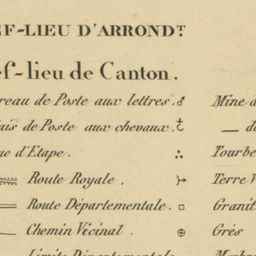 EF-LIEU D'ARRONDT
ef-lieu de Canton.
reau de Poste aux lettres.
ais de Poste aux chevaux.
ue d'Etape.
Route Royale.
Route Départementale.
Chemin Vicinal.
Limite Départementale
Mine d
— d
Tourbe
Terre V
Granit
Grès